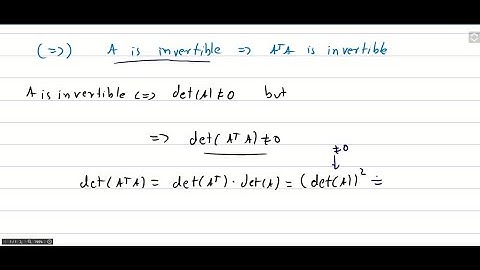 (=>) A is invertible => AᵀA is invertible
A is invertible <=> det(A) ≠ 0 but
=> det(AᵀA) ≠ 0
≠0
↓
det(AᵀA) = det(Aᵀ)·det(A) = (det(A))² =